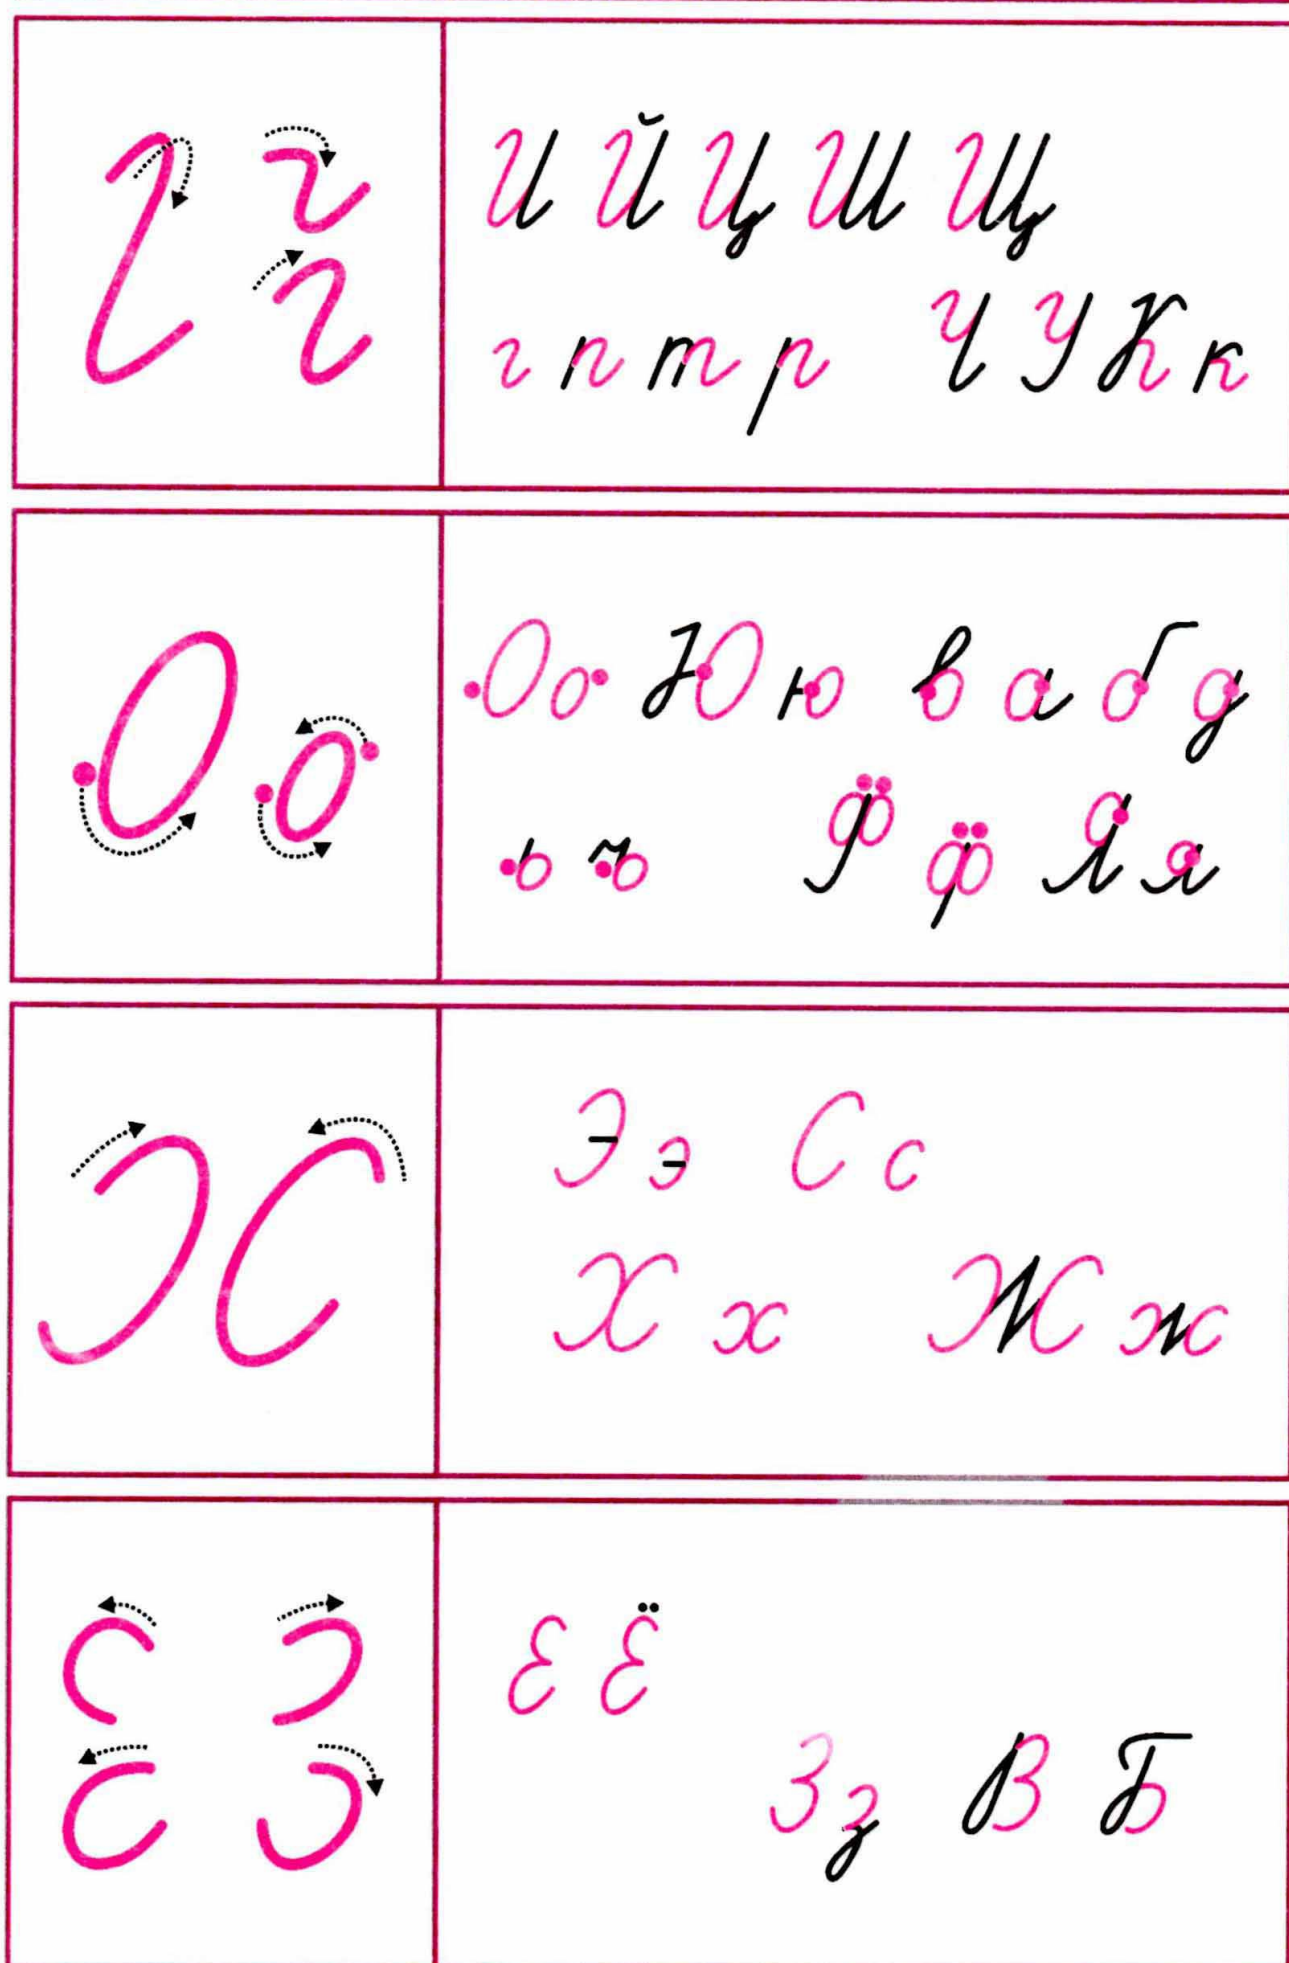 И Й Ц Ш Щ
г п т р Ч У К к
О о Ю ю в а б д
ь ъ Ф ф Я я
Э э С с
Х х Ж ж
Е Ё
З з В Б